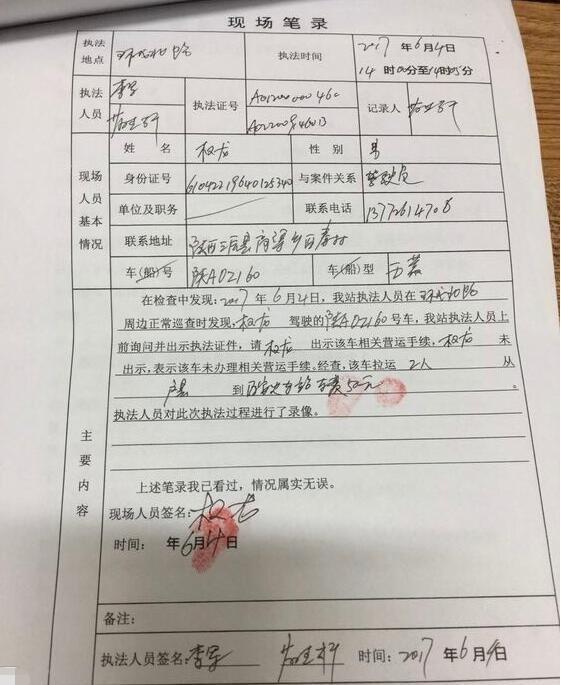 现场笔录
执法地点 环城北路 执法时间 2017年6月4日
14时00分至14时05分
执法人员 李军 执法证号 记录人
姓名 权龙 性别 男
现场人员基本情况
身份证号 61042219640125340 与案件关系 驾驶员
单位及职务 联系电话 13772614708
联系地址 陕西三原县
车(船)号 陕A02160 车(船)型
主要内容
在检查中发现:2017年6月4日,我站执法人员在环城北路
周边正常巡查时发现,权龙 驾驶的陕A02160号车,我站执法人员上
前询问并出示执法证件,请 权龙 出示该车相关营运手续,权龙 未
出示,表示该车未办理相关营运手续。经查,该车拉运 2人 从
到 50元 。
执法人员对此次执法过程进行了录像。
上述笔录我已看过,情况属实无误。
现场人员签名:权龙
时间: 年6月4日
备注:
执法人员签名:李军 时间:2017年6月4日